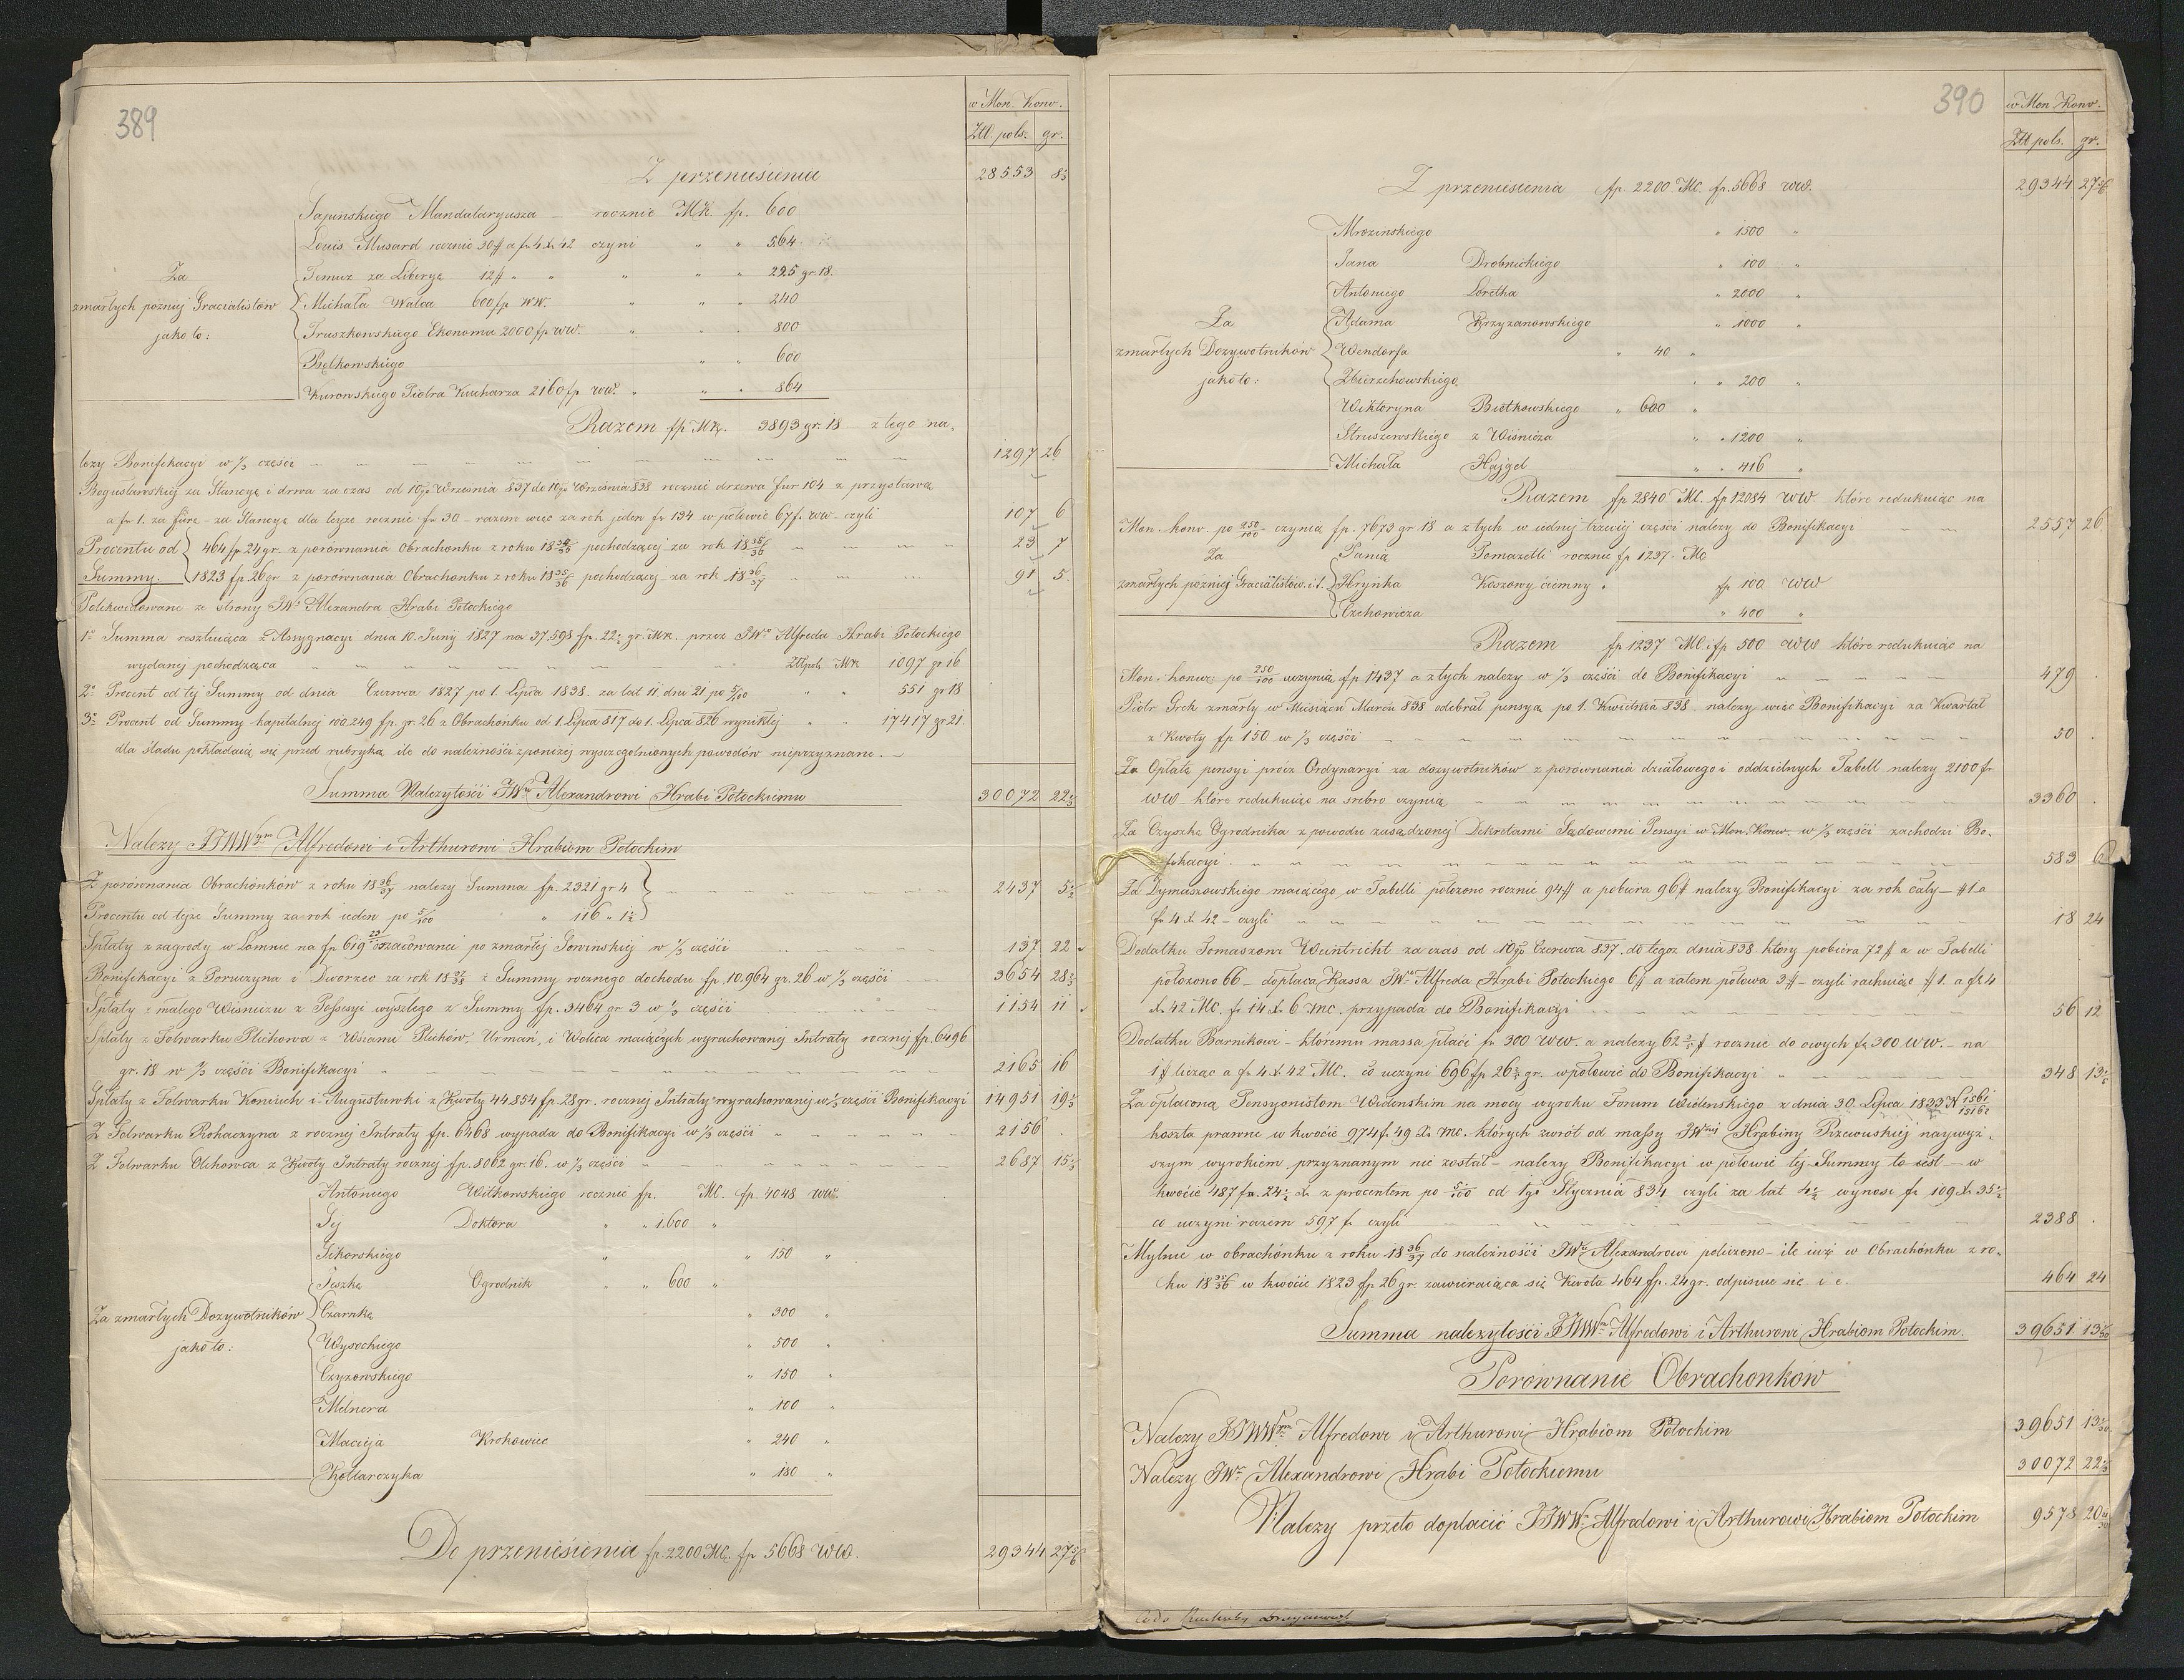 389
w Mon. Konv.
Złł. pols. gr.
Z przeniesienia 28553 8⅓
Sapinskiego Mandataryusza — rocznie MK. fp. 600
Louis Musard rocznie 30 # a fr 4 x 42 czyni " " 564
Temuz za Liberyę 12 # " " " " " 225 gr. 18
Za
zmarłych pozniej Gracialistow
jako to:
Michała Walca 600 fp WW. " " " 240
Truszkowskiego Ekonoma 2000 fp WW. " " " 800
Bętkowskiego " " 600
Kurowskiego Piotra Kucharza 2160 fp WW. " " " 864
Razem fp MK. 3893 gr. 18 — z tego na-
lezy Bonifikacyi w ⅓ części 1297 26
Bogusławskiej za Stancyę i drwa za czas od 10go Września 837 do 10go Września 838 rocznie drzewa fur 104 z przystawą
a fr 1. za furę — za Stancyę dla teyze rocznie fr 30 — razem więc za rok jeden fr 134 w połowie 67 f. WW. czyli 107 6
Procentu od 464 fp 24 gr. z porównania Obrachonku z roku 18 34/35 pochodzącej za rok 18 35/36 23 7
Summy. 1823 fp. 26 gr. z porównania Obrachonku z roku 18 35/36 pochodzącej za rok 18 36/37 91 5
Polikwidowane ze strony JWo Alexandra Hrabi Potockiego
1o Summa resztuiąca z Assygnacyi dnia 10. Juny 1827 na 37.598 fp. 22½ gr. MK. przez JWo Alfreda Hrabi Potockiego
wydanej pochodząca Złłpols MK 1097 gr 16
2o Procent od tej Summy od dnia Czerwca 1827 po 1. Lipca 1838. za lat 11 dni 21 po 5/100 " " 551 gr 18
3o Procent od Summy kapitalnej 100.249 fp. gr. 26 z Obrachonku od 1. Lipca 817 do 1. Lipca 826 wynikłej " " 17417 gr 21.
dla śladu pokładaią się przed rubryką ile do należności z poniżej wyszczegolnionych powodow nieprzyznane.
Summa Nalezytości JWmu Alexandrowi Hrabi Potockiemu 30072 22⅓
Nalezy JJWWym Alfredowi i Arthurowi Hrabiom Potockim
Z porównania Obrachonków z roku 18 36/37 nalezy Summa fp. 2321 gr 4 2437 5½
Procentu od tejze Summy za rok ieden po 5/100 " 116 " 1½
Spłaty z zagrody w Łomnie na fp 619 oszacowanej po zmarłej Gowinskiej w ⅓ części 137 22
Bonifikacyi z Poruczyna i Dworzec za rok 18 37/38 z Summy rocznego dochodu fp. 10.964 gr. 26 w ⅓ części 3654 28⅔
Spłaty z małego Wisniczu z Possesyi wyszłego z Summy fp. 3464 gr 3 w ⅓ części 1154 11
Spłaty z Folwarku Plichowa z Wsiami Plichów, Urmań, i Wolica maiących wyrachowanej Intraty rocznej fp. 6496
gr. 18 w ⅓ części Bonifikacyi 2165 16
Spłaty z Folwarku Koniuch i Augustowki z Kwoty 44.854 fp. 28 gr. rocznej Intraty wyrachowanej w ⅓ części Bonifikacyi 14951 19⅓
Z Folwarku Rohaczyna z rocznej Intraty fp. 6468 wypada do Bonifikacyi w ⅓ części 2156
Z Folwarku Olchowca z Kwoty Intraty rocznej fp. 8062 gr. 16. w ⅓ części 2687 15⅓
Antoniego Witkowskiego rocznie fp. MC. fp. 4048 WW.
Tej Doktora " " 1.600 "
Sikorskiego " " 150 "
Teszkę Ogrodnik " " 600 "
Za zmarłych Dozywotników
jako to:
Czarnkę " 300 "
Wysockiego " 500 "
Czyzowskiego " 150 "
Melnera " 100 "
Macieja Krokowiec " 240 "
Kotlarczyka " 180 "
Do przeniesienia fp. 2200 MC. fp 5668 WW. 29344 27⅚
390
w Mon Konv.
Złł pols. gr.
Z przeniesienia fp. 2200 MC. fp. 5668 WW. 29344 27⅚
Mrozinskiego " 1500 "
Jana Drobnickiego " 100 "
Antoniego Loretha " 2000 "
Za
zmarłych Dozywotników
jako to:
Adama Krzyzanowskiego " 1000 "
Wendorfa " 40 "
Zbierzchowskiego " " 200 "
Wiktoryna Biotkowskiego " 600 "
Struszewskiego z Wiśnicza " " 1200 "
Michała Hajgel " " 416 "
Razem fp 2840 MC. fp 12084 WW które redukuiąc na
Mon. konv. po 250/100 czynią fp. 7673 gr 18 a z tych w iednej trzeciej części nalezy do Bonifikacyi 2557 26
Za
zmarłych pozniej Gracialistów. i. t.
Panią Tomazetti rocznie fp 1237. MC
Hrynka Koszowy ciemny " fp 100. WW
Czechowicza " 400 "
Razem fp 1237 MC i fp 500 WW które redukuiąc na
Mon. konw. po 250/100 uczynią fp 1437 a z tych nalezy w ⅓ części do Bonifikacyi 479
Piotr Grek zmarły w Miesiącu Marcu 838 odebrał pensyą po 1. Kwietnia 838 nalezy więc Bonifikacyi za Kwartał
z Kwoty fp 150 w ⅓ części 50
Za Opłatę pensyi prócz Ordynaryi za dozywotników z porównania działowego i oddzielnych Tabell nalezy 2100 fr
WW — które redukuiąc na srebro czynią 3360
Za Czyszkę Ogrodnika z powodu zasądzonej Dekretami Sądowemi Pensyi w Mon. Konw. w ⅓ części zachodzi Bo-
nifikacyi 583 6
Za Dymaszowskiego maiącego w Tabelli położono rocznie 94 # a pobiera 96 # nalezy Bonifikacyi za rok cały — # 1 a
fr 4 x 42 — czyli 18 24
Dodatku Tomaszowi Weintricht za czas od 10go Czerwca 837. do tegoz dnia 838 ktory pobiera 72 # a w Tabelli
położono 66 — dopłaca Kassa JWo Alfreda Hrabi Potockiego 6 # a zatem połowa 3 # — czyli rachuiąc # 1. a fr 4
x. 42 MC. fr 14 x 6 MC. przypada do Bonifikacyi 56 12
Dodatku Barnikowi — któremu massa płaci fr 300 WW. a nalezy 62 # rocznie do owych fr 300 WW. — na
1 # licząc a fr 4 x 42 MC. co uczyni 696 fp 26⅖ gr. w połowie do Bonifikacyi 348 13⅕
Za opłaconą Pensyonistom Wiedenskim na mocy wyroku Forum Wiedenskiego z dnia 30 Lipca 1833 N
koszta prawne w kwocie 974 f. 49 x. MC. których zwrót od massy JWnej Hrabiny Rzewuskiej naywyz-
szym wyrokiem przyznanym nie został — nalezy Bonifikacyi w połowie tej Summy to iest — w
kwocie 487 fr. 24½ x. z procentem po 5/100 od 1go Stycznia 834 czyli za lat 4½ wynosi fr 109 x 35½
co uczyni razem 597 fr czyli 2388
Mylnie w obrachónku z roku 18 36/37 do należności JWu Alexandrowi policzono — ile iuż w Obrachónku z ro-
ku 18 35/36 w kwocie 1823 fp 26 gr. zawieraiąca się Kwota 464 fp. 24 gr. odpisuie się i e. 464 24
Summa nalezytości JJWWm Alfredowi i Arthurowi Hrabiom Potockim. 39651 13
Porównanie Obrachonków
Nalezy JJWWym Alfredowi i Arthurowi Hrabiom Potockim 39651 13
Nalezy JWu Alexandrowi Hrabi Potockiemu 30072 22⅓
Nalezy przeto dopłacić JJWWm Alfredowi i Arthurowi Hrabiom Potockim 9578 20